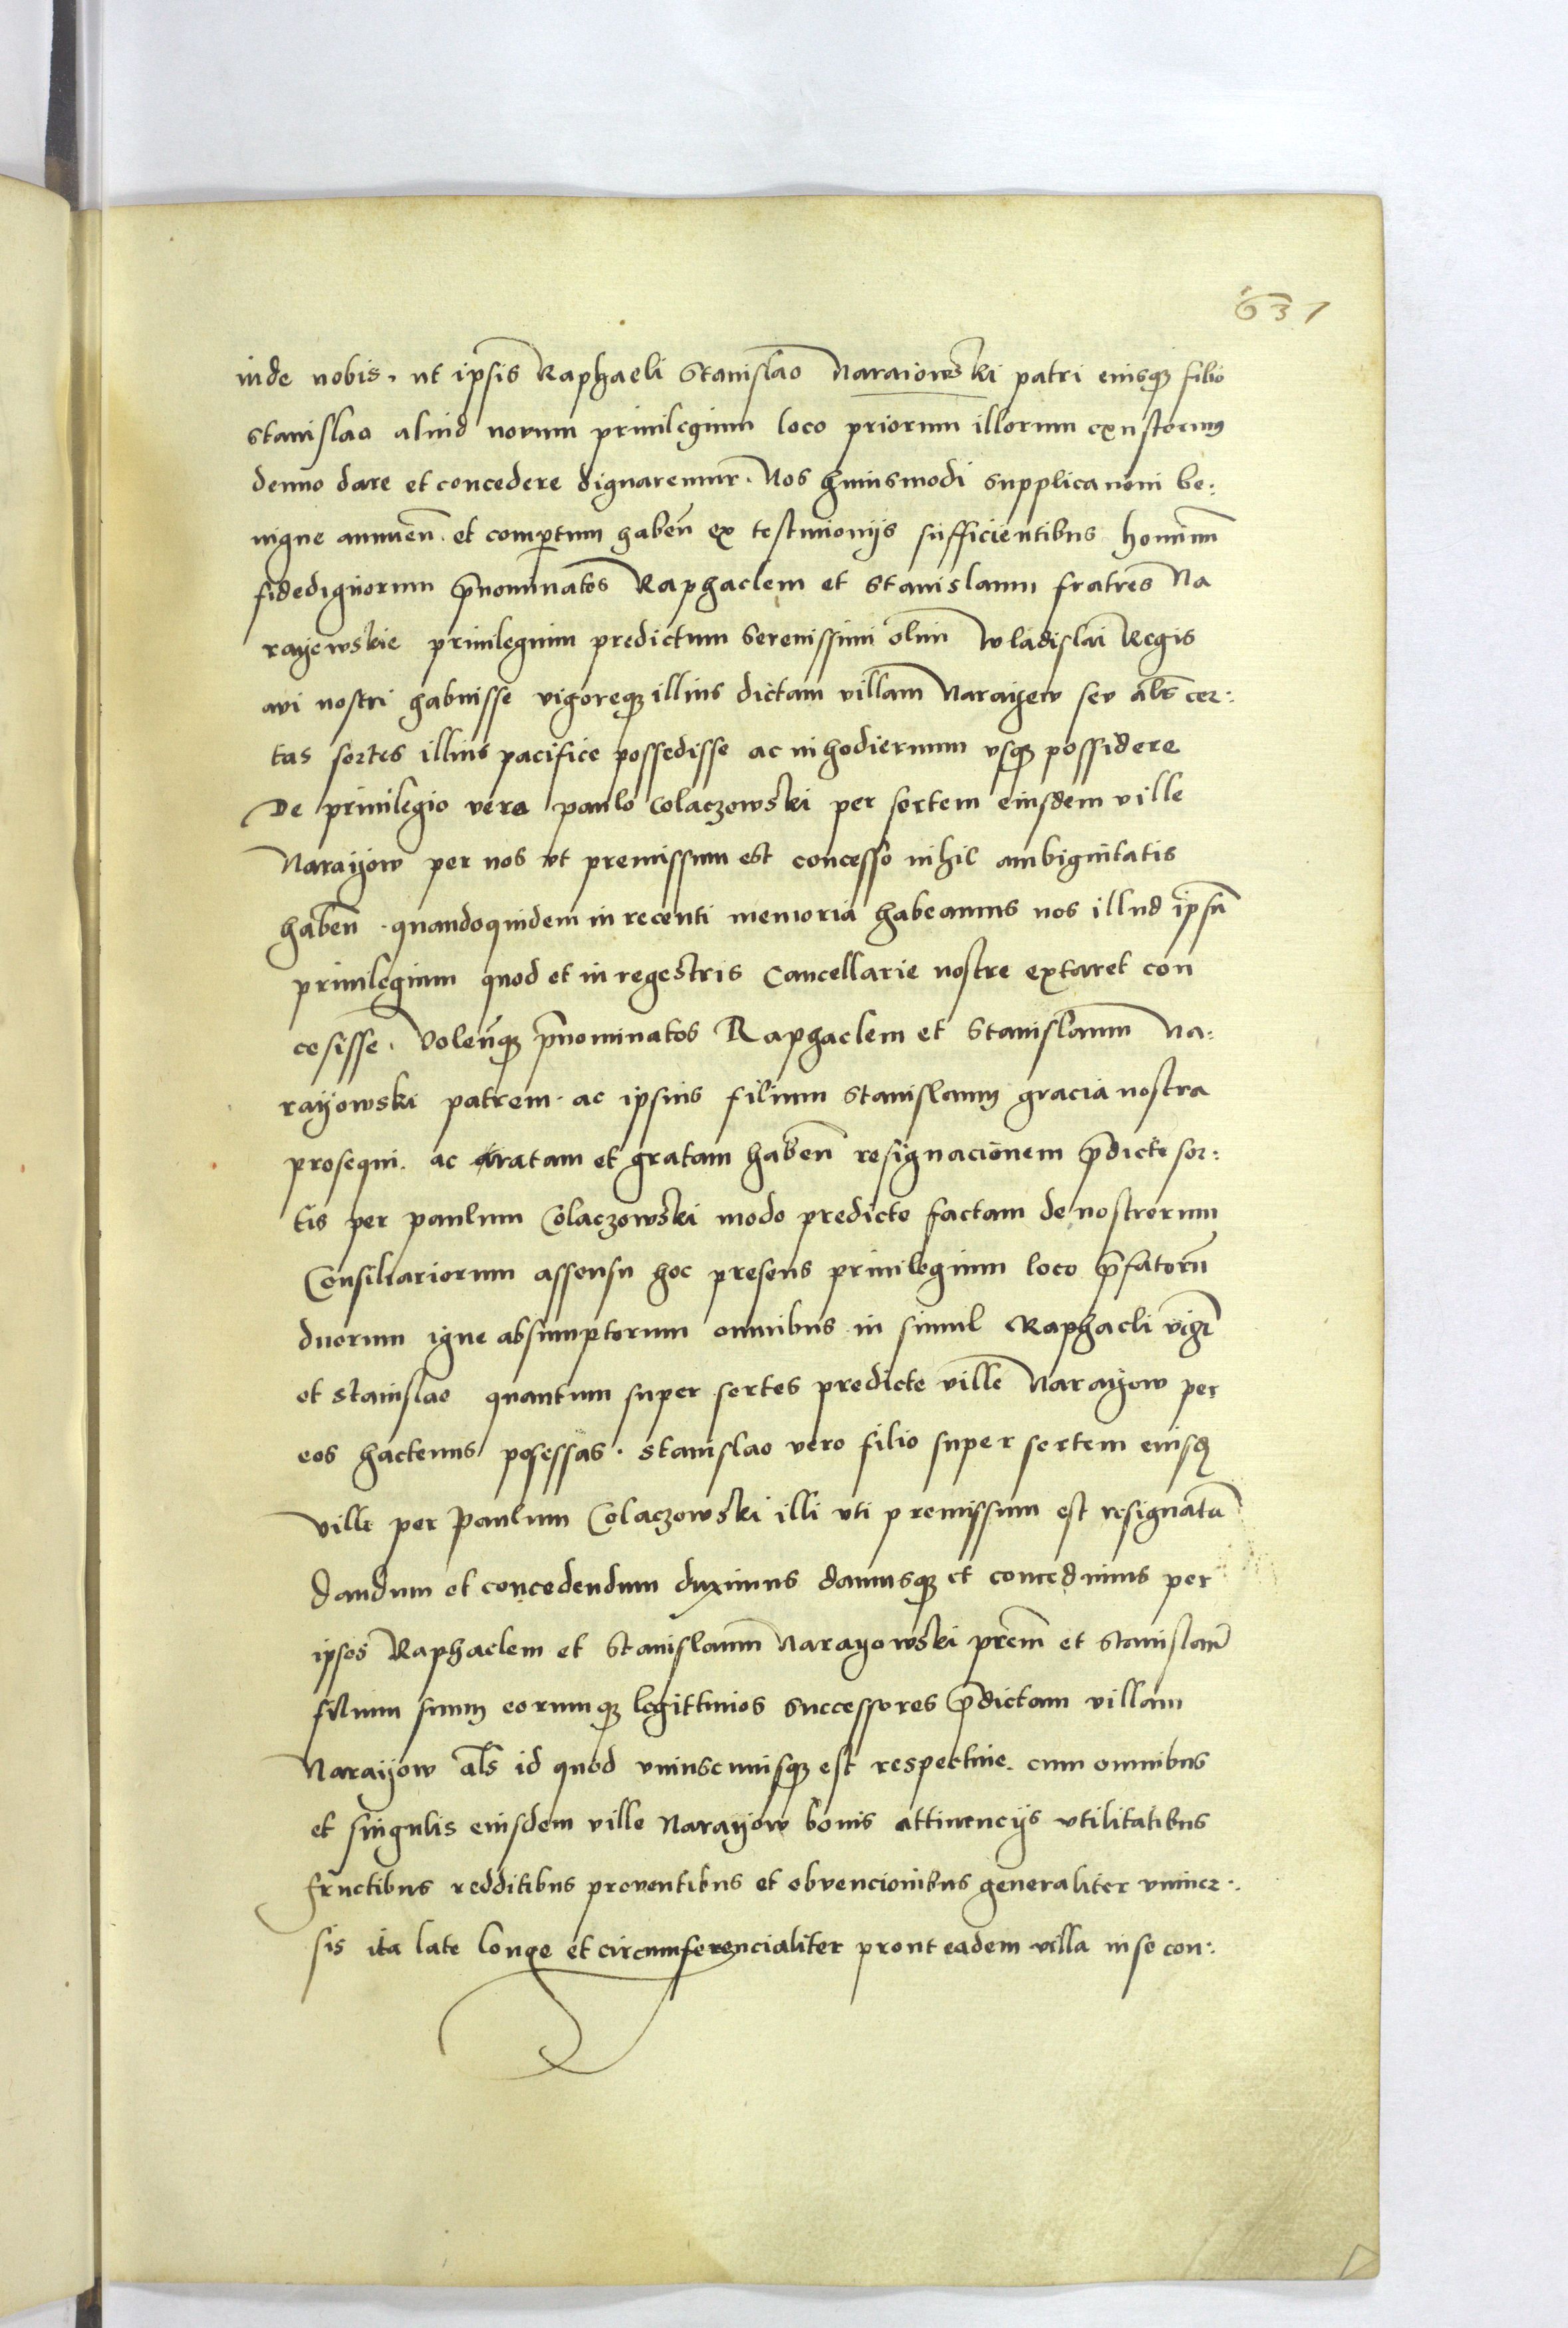 631
inde nobis. ut ipsis Raphaeli Stanislao Naraiowski patri eiusq; filio
Stanislao aliud novum privilegium loco priorum illorum exustorum
denuo dare et concedere dignaremur. Nos huiusmodi supplicacioni be:
nigne annuen̄. et compertum haben̄ ex testimoniis sufficientibus hominum
fidedignorum p̄nominatos Raphaelem et Stanislaum fratres Na
rayewskie privilegium predictum Serenissimi olim Wladislai Regis
avi nostri habuisse vigoreq; illius dictam villam Narayew seu al̄s cer:
tas sortes illius pacifice possedisse ac in hodiernum usq; possidere
De privilegio vero paulo Colaczowski per sortem eiusdem ville
Narayow per nos ut premissum est concesso nihil ambiguitatis
haben̄. quandoquidem in recenti memoria habeamus nos illud ipsū
privilegium quod et in regestris Cancellarie nostre extaret con
cesisse. Volen̄q; p̄nominatos Raphaelem et Stanislaum Na:
rayowski patrem. ac ipsius filium Stanislaum gracia nostra
prosequi. ac ratam et gratam haben̄ resignacionem p̄dicte sor:
tis per paulum Colaczowski modo predicto factam de nostrorum
Consiliariorum assensu hoc presens privilegium loco p̄fatorū
duorum igne absumptorum omnibus in simul Raphaeli
et Stanislao quantum super sortes predicte ville Narayow per
eos hactenus posessas. Stanislao vero filio super sortem eiusd
ville per Paulum Colaczowski illi uti premissum est resignatū
dandum et concedendum duximus damusq; et concedimus per
ipsos Raphaelem et Stanislaum Narayowski pr̄em et Stanislaū
filium suum eorumq; legittimos successores p̄dictam villam
Narayow al̄s id quod uniuscuiusq; est respective. cum omnibus
et singulis eiusdem ville Narayow bonis attinenciis utilitatibus
fructibus redditibus proventibus et obvencionibus generaliter univer:
sis ita late longe et circumferencialiter prout eadem villa in se con: